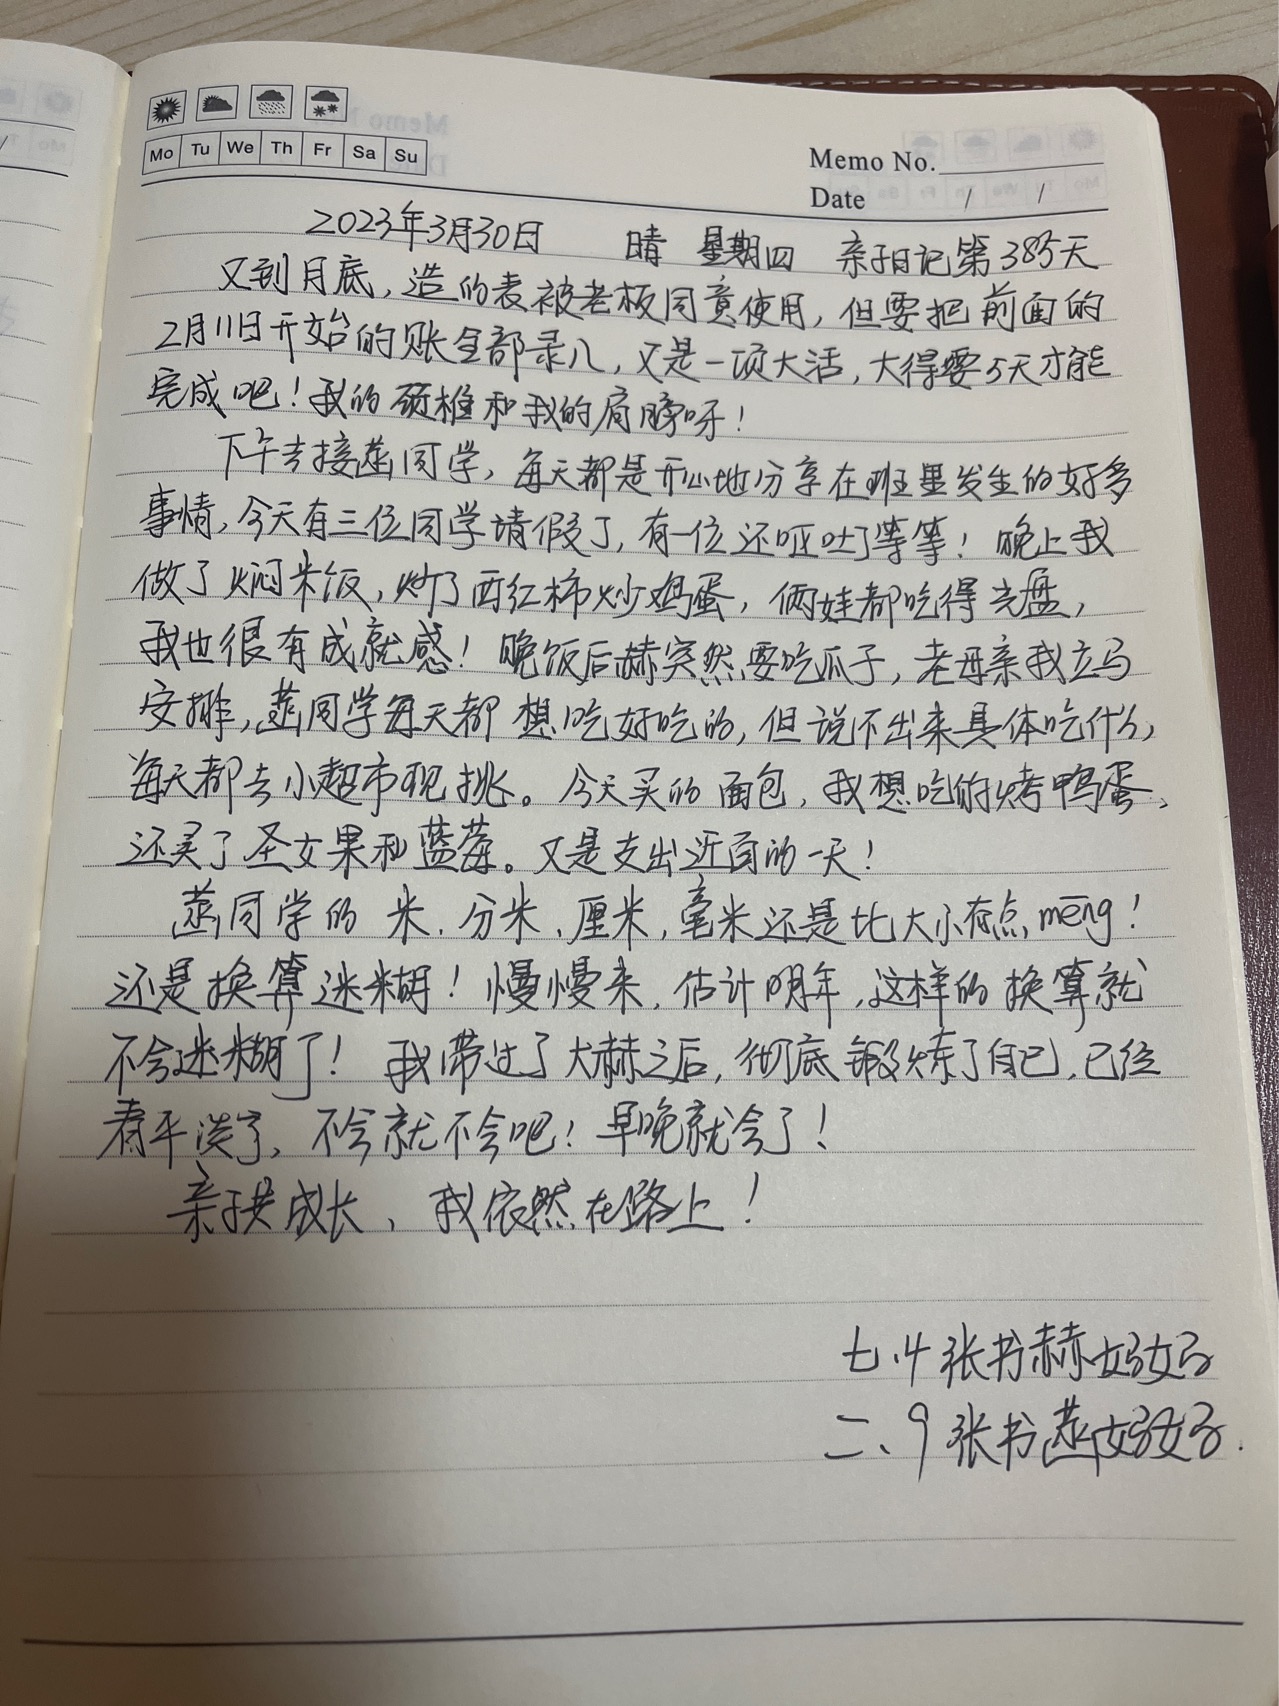 Mo Tu We Th Fr Sa Su
Memo No.
Date / /
2023年3月30日 晴 星期四 亲子日记第385天
又到月底,造的表被老板同意使用,但要把前面的
2月11日开始的账全部录入,又是一项大活,大得要5天才能
完成吧!我的颈椎和我的肩膀呀!
下午去接燕同学,每天都是开心地分享在班里发生的好多
事情,今天有三位同学请假了,有一位还呕吐了等等!晚上我
做了焖米饭,炒了西红柿炒鸡蛋,俩娃都吃得光盘,
我也很有成就感!晚饭后赫突然要吃瓜子,老母亲我立马
安排,燕同学每天都想吃好吃的,但说不出来具体吃什么,
每天都去小超市现挑。今天买的面包,我想吃的烤鸭蛋,
还买了圣女果和蓝莓。又是支出近百的一天!
燕同学的米、分米、厘米,毫米还是比大小有点mēng!
还是换算迷糊!慢慢来,估计明年,这样的换算就
不会迷糊了!我带过了大赫之后,彻底锻炼了自己,已经
看平淡了,不会就不会吧!早晚就会了!
亲子共成长,我依然在路上!
七.4张书赫妈妈
二、9张书燕妈妈.